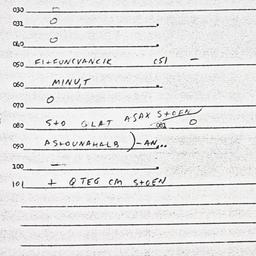 030 –
031 0
040 0
050 FI+FUNCVANCIK (5) –
060 MINU,T
070 0
080 S+O GLAT ASAX S+OEN 0
090 AS+OUNAHALB )-AN,..
100 —
101 + QTEG CM S+OEN